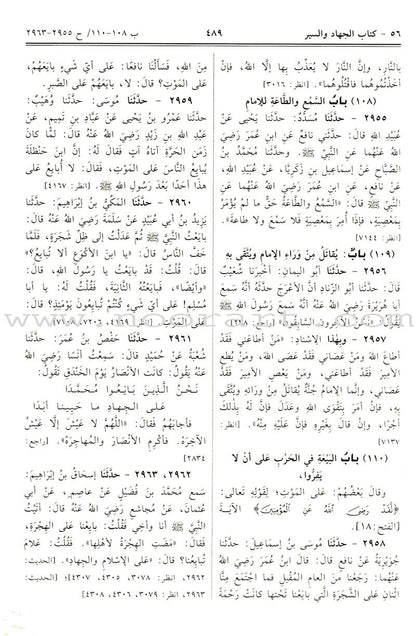 ٥٦ - كتاب الجهاد والسير
٤٨٩
ب ١٠٨-١١٠/ ح ٢٩٥٥-٢٩٦٣
بالنَّارِ، وإنَّ النَّارَ لا يُعَذِّبُ بِها إلَّا اللهُ، فإنْ
أخَذْتُمُوهُما فاقْتُلُوهُما». [انظر: ٣٠١٦]
(١٠٨) بابُ السَّمْعِ والطَّاعَةِ للإمامِ
٢٩٥٥ - حدَّثَنا مُسَدَّدٌ: حدَّثَنا يَحْيَى عَنْ
عُبَيْدِ اللهِ قالَ: حدَّثَني نافعٌ عَنِ ابنِ عُمَرَ رَضِيَ اللهُ
عَنْهُما عَنِ النَّبيِّ ﷺ. وحدَّثَنا مُحمَّدُ بنُ
الصَّبَّاحِ عَنْ إسماعِيلَ بنِ زَكَرِيَّا، عَنْ عُبَيْدِ اللهِ،
عَنْ نافعٍ، عَنِ ابنِ عُمَرَ رَضِيَ اللهُ عَنْهُما عَنِ
النَّبيِّ ﷺ قالَ: «السَّمْعُ والطَّاعَةُ حَقٌّ ما لَمْ يُؤْمَرْ
بِمَعْصِيَةٍ، فإذَا أُمِرَ بِمَعْصِيَةٍ فَلا سَمْعَ ولا طاعَةَ».
[انظر: ٧١٤٤]
(١٠٩) بابٌ: يُقاتَلُ مِنْ وَرَاءِ الإمامِ ويُتَّقَى بِهِ
٢٩٥٦ - حدَّثَنا أبُو اليَمانِ: أخبرَنا شُعَيْبٌ
حدَّثَنا أبُو الزِّنادِ أنَّ الأعْرَجَ حدَّثَهُ أنَّهُ سَمِعَ
أبا هُرَيْرَةَ رَضِيَ اللهُ عَنْهُ أنَّهُ سَمِعَ رَسُولَ اللهِ ﷺ
يَقُولُ: «نَحْنُ الآخِرُونَ السَّابِقُونَ». [راجع: ٢٣٨]
٢٩٥٧ - وبِهذا الإسْنادِ: «مَنْ أطاعَنِي فَقَدْ
أطاعَ اللهَ ومَنْ عَصَاني فَقَدْ عَصَى اللهَ، ومَنْ يُطِعِ
الأمِيرَ فَقَدْ أطاعَنِي، ومَنْ يَعْصِ الأمِيرَ فَقَدْ
عَصَانِي، وإنَّما الإمامُ جُنَّةٌ يُقاتَلُ مِنْ وَرَائِهِ ويُتَّقَى
بِهِ، فإنْ أمَرَ بِتَقْوَى اللهِ وعَدَلَ فإنَّ لَهُ بِذٰلِكَ
أجْرًا، وإنْ قالَ بِغَيْرِهِ فإنَّ عَلَيْهِ مِنْهُ». [انظر:
٧١٣٧]
(١١٠) بابُ البَيْعَةِ في الحَرْبِ عَلى أنْ لا
يَفِرُّوا،
وقالَ بَعْضُهُمْ: عَلى المَوْتِ؛ لِقَوْلِهِ تَعالى:
﴿لَّقَدْ رَضِيَ ٱللَّهُ عَنِ ٱلْمُؤْمِنِينَ﴾ الآيَةَ
[الفتح: ١٨].
٢٩٥٨ - حدَّثَنا مُوسَى بنُ إسماعِيلَ: حدَّثَنا
جُوَيْرِيَةُ عَنْ نافعٍ قالَ: قالَ ابنُ عُمَرَ رَضِيَ اللهُ
عَنْهُما: رَجَعْنا مِنَ العامِ المُقْبِلِ فَما اجْتَمَعَ مِنَّا
اثْنَانِ عَلى الشَّجَرَةِ الَّتي بايَعْنا تَحْتَها كانَتْ رَحْمَةً
مِنَ اللهِ، فَسَأَلْنا نافعًا: عَلى أيِّ شَيْءٍ بايَعَهُمْ،
عَلى المَوْتِ؟ قالَ: لا، بايَعَهُمْ عَلى الصَّبْرِ.
٢٩٥٩ - حدَّثَنا مُوسَى: حدَّثَنا وُهَيْبٌ:
حدَّثَنا عَمْرُو بنُ يَحْيَى عَنْ عَبَّادِ بنِ تَمِيمٍ، عَنْ
عَبْدِ اللهِ بنِ زَيْدٍ رَضِيَ اللهُ عَنْهُ قالَ: لَمَّا كانَ
زَمَنُ الحَرَّةِ أتاهُ آتٍ فَقالَ لهُ: إنَّ ابنَ حَنْظَلَةَ
يُبايِعُ النَّاسَ عَلى المَوْتِ، فَقالَ: لا أُبايِعُ عَلى
هذا أحَدًا بَعْدَ رَسُولِ اللهِ ﷺ. [انظر: ٤١٦٧]
٢٩٦٠ - حدَّثَنا المَكِّيُّ بنُ إبْراهِيمَ: حدَّثَنا
يَزِيدُ بنُ أبي عُبَيْدٍ عَنْ سَلَمَةَ رَضِيَ اللهُ عَنْهُ قالَ:
بايَعْتُ النَّبيَّ ﷺ ثُمَّ عَدَلْتُ إلى ظِلِّ شَجَرَةٍ، فَلَمَّا
خَفَّ النَّاسُ قالَ: «يا ابنَ الأكْوَعِ ألا تُبايِعُ؟»
قالَ: قُلْتُ: قَدْ بايَعْتُ يا رَسُولَ اللهِ، قالَ:
«وأيْضًا»، فَبايَعْتُهُ الثَّانِيَةَ، فَقُلْتُ لَهُ: يا أبا
مُسْلِمٍ! عَلى أيِّ شَيْءٍ كُنْتُمْ تُبايِعُونَ يَوْمَئِذٍ؟ قالَ:
عَلى المَوْتِ. [انظر: ٤١٦٩، ٧٢٠٦، ٧٢٠٨]
٢٩٦١ - حدَّثَنا حَفْصُ بنُ عُمَرَ: حدَّثَنا
شُعْبَةُ عَنْ حُمَيْدٍ قالَ: سَمِعْتُ أنَسًا رَضِيَ اللهُ
عَنْهُ يَقُولُ: كانَتِ الأنْصَارُ يَوْمَ الخَنْدَقِ تَقُولُ:
نَحْنُ الَّذِينَ بايَعُوا مُحَمَّدَا
عَلى الجِهادِ ما حَيِينا أبَدَا
فأجابَهُمْ فَقالَ: «اللَّهُمَّ لا عَيْشَ إلَّا عَيْشُ
الآخِرَهْ. فأكْرِمِ الأنْصَارَ والمُهاجِرَهْ». [راجع:
٢٨٣٤]
٢٩٦٢، ٢٩٦٣ - حدَّثَنا إسْحاقُ بنُ إبْراهِيمَ:
سَمِعَ مُحمَّدَ بنَ فُضَيْلٍ عَنْ عاصِمٍ، عَنْ أبي
عُثْمانَ، عَنْ مُجاشِعٍ رَضِيَ اللهُ عَنْهُ قالَ: أتَيْتُ
النَّبيَّ ﷺ أنا وأخِي فَقُلْتُ: بايِعْنا عَلى الهِجْرَةِ،
فَقالَ: «مَضَتِ الهِجْرَةُ لأهْلِها». فَقُلْتُ: عَلامَ
تُبايِعُنا؟ قالَ: «عَلى الإسْلامِ والجِهادِ». [الحديث:
٢٩٦٢، انظر: ٣٠٧٨، ٤٣٠٥، ٤٣٠٧؛ الحديث:
٢٩٦٣، انظر: ٣٠٧٩، ٤٣٠٦، ٤٣٠٨]